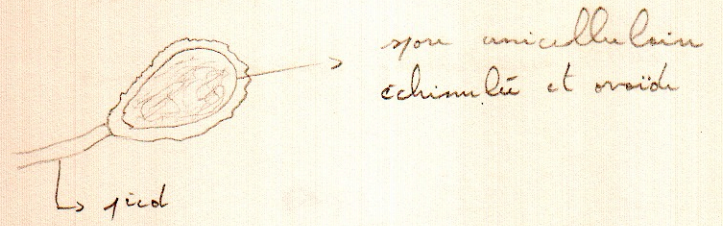 spore unicellulaire
échinulée et ovoïde
pied